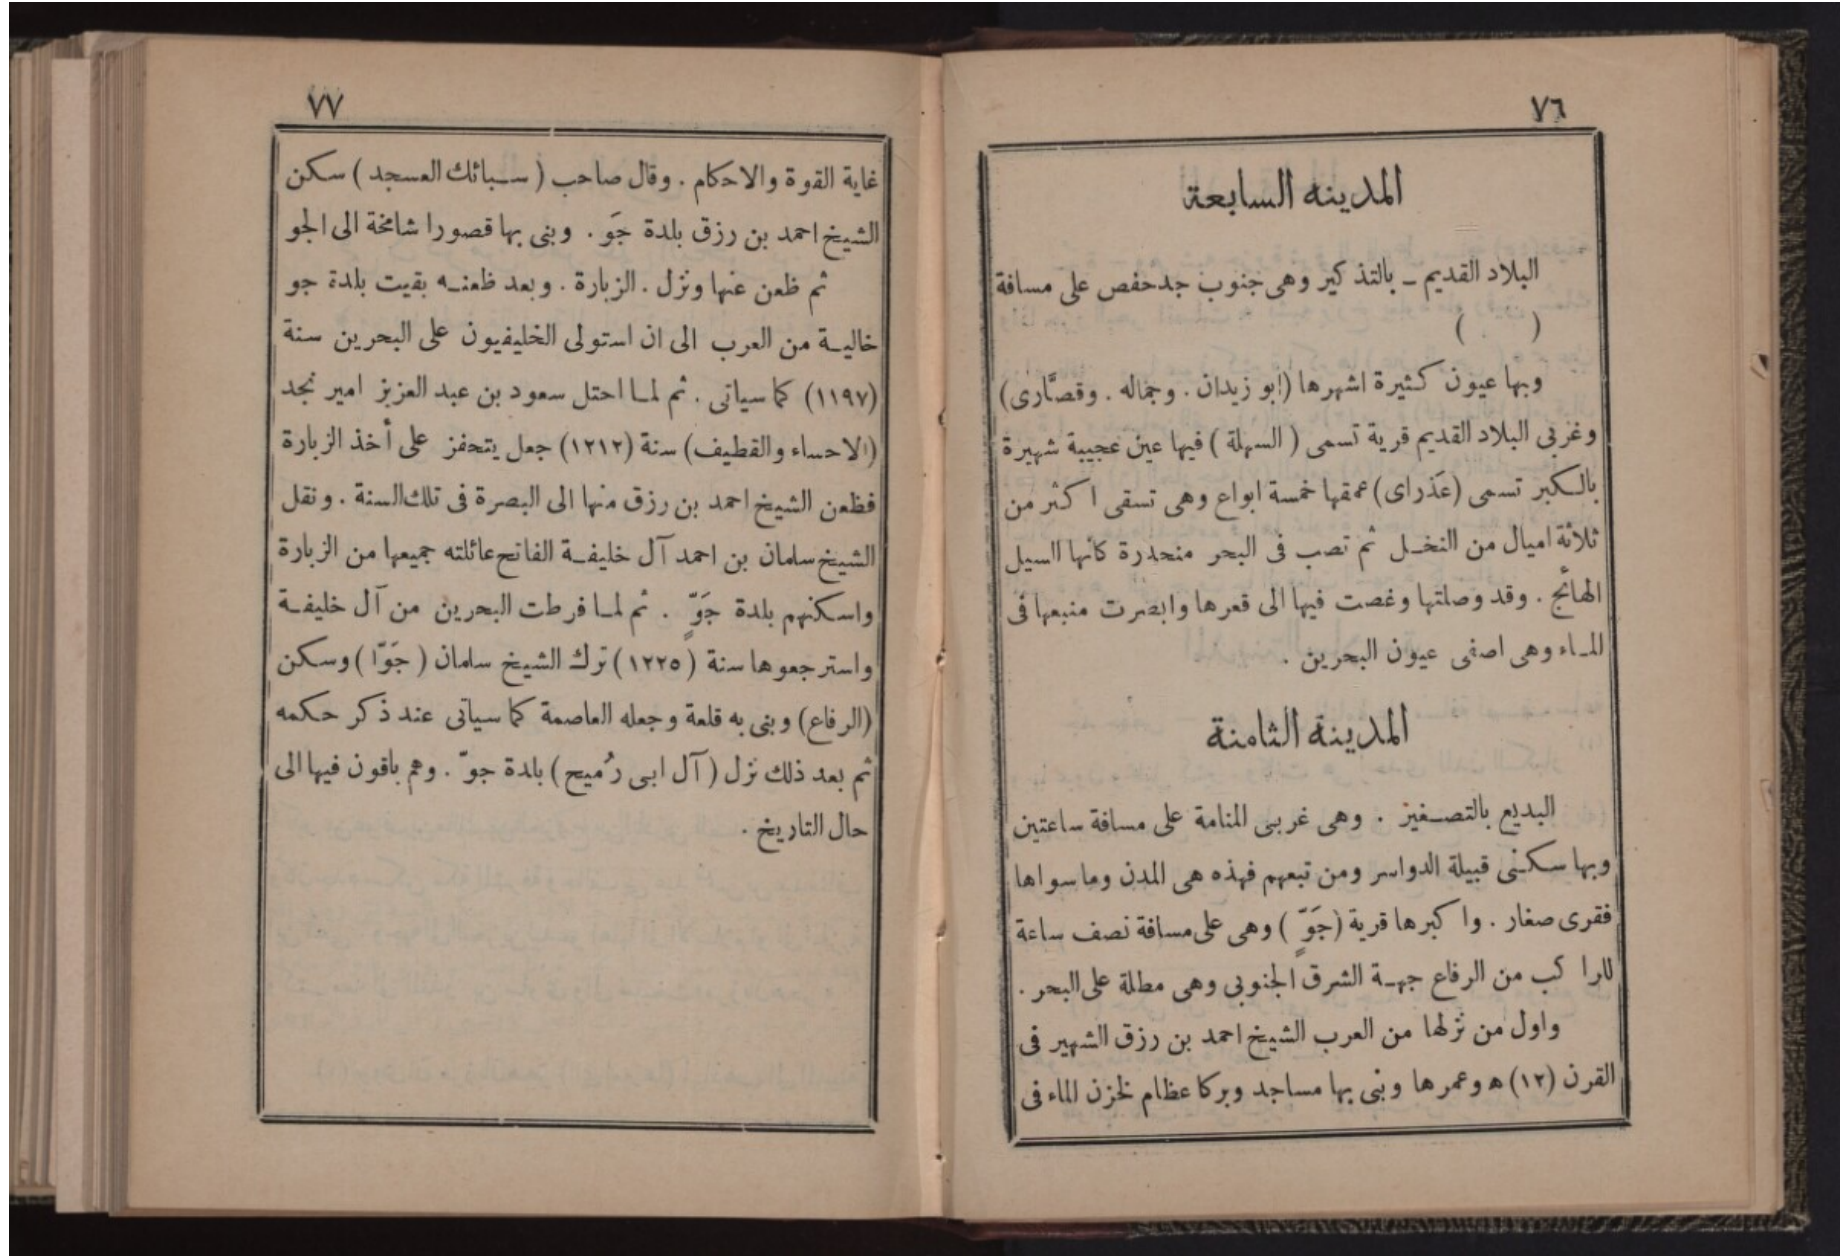 ٧٦
المدينه السابعة
البلاد القديم ـ بالتذكير وهى جنوب جدحفص على مسافة
(        )
وبها عيون كثيرة اشهرها (ابو زيدان . وجماله . وقصَّارى)
وغربى البلاد القديم قرية تسمى ( السهلة ) فيها عين عجيبة شهيرة
بالكبر تسمى (عَذراى) عمقها خمسة ابواع وهى تسقى اكثر من
ثلاثة اميال من النخل ثم تصب فى البحر منحدرة كأنها السيل
الهائج . وقد وصلتها وغصت فيها الى قعرها وابصرت منبعها فى
الماء وهى اصفى عيون البحرين .
المدينة الثامنة
البديع بالتصغيز . وهى غربى المنامة على مسافة ساعتين
وبها سكنى قبيلة الدواسر ومن تبعهم فهذه هى المدن وماسواها
فقرى صغار . واكبرها قرية (جَوٍّ ) وهى على مسافة نصف ساعة
للراكب من الرفاع جهة الشرق الجنوبى وهى مطلة على البحر .
واول من نزلها من العرب الشيخ احمد بن رزق الشهير فى
القرن (١٢) ه وعمرها وبنى بها مساجد وبركا عظام لخزن الماء فى
٧٧
غاية القوة والاحكام . وقال صاحب ( سبائك العسجد ) سكن
الشيخ احمد بن رزق بلدة جَو . وبنى بها قصورا شامخة الى الجو
ثم ظعن عنها ونزل . الزبارة . وبعد ظعنه بقيت بلدة جو
خالية من العرب الى ان استولى الخليفيون على البحرين سنة
(١١٩٧) كما سياتى . ثم لما احتل سعود بن عبد العزيز امير نجد
(الاحساء والقطيف) سنة (١٢١٢) جعل يتحفز على أخذ الزبارة
فظعن الشيخ احمد بن رزق منها الى البصرة فى تلك السنة . ونقل
الشيخ سلمان بن احمد آل خليفة الفاتح عائلته جميعها من الزبارة
واسكنهم بلدة جَوٍّ . ثم لما فرطت البحرين من آل خليفة
واسترجعوها سنة (١٢٢٥) ترك الشيخ سلمان ( جَوّا ) وسكن
(الرفاع) وبنى به قلعة وجعله العاصمة كما سياتى عند ذكر حكمه
ثم بعد ذلك نزل ( آل ابى رُميح ) بلدة جوّ . وهم باقون فيها الى
حال التاريخ .